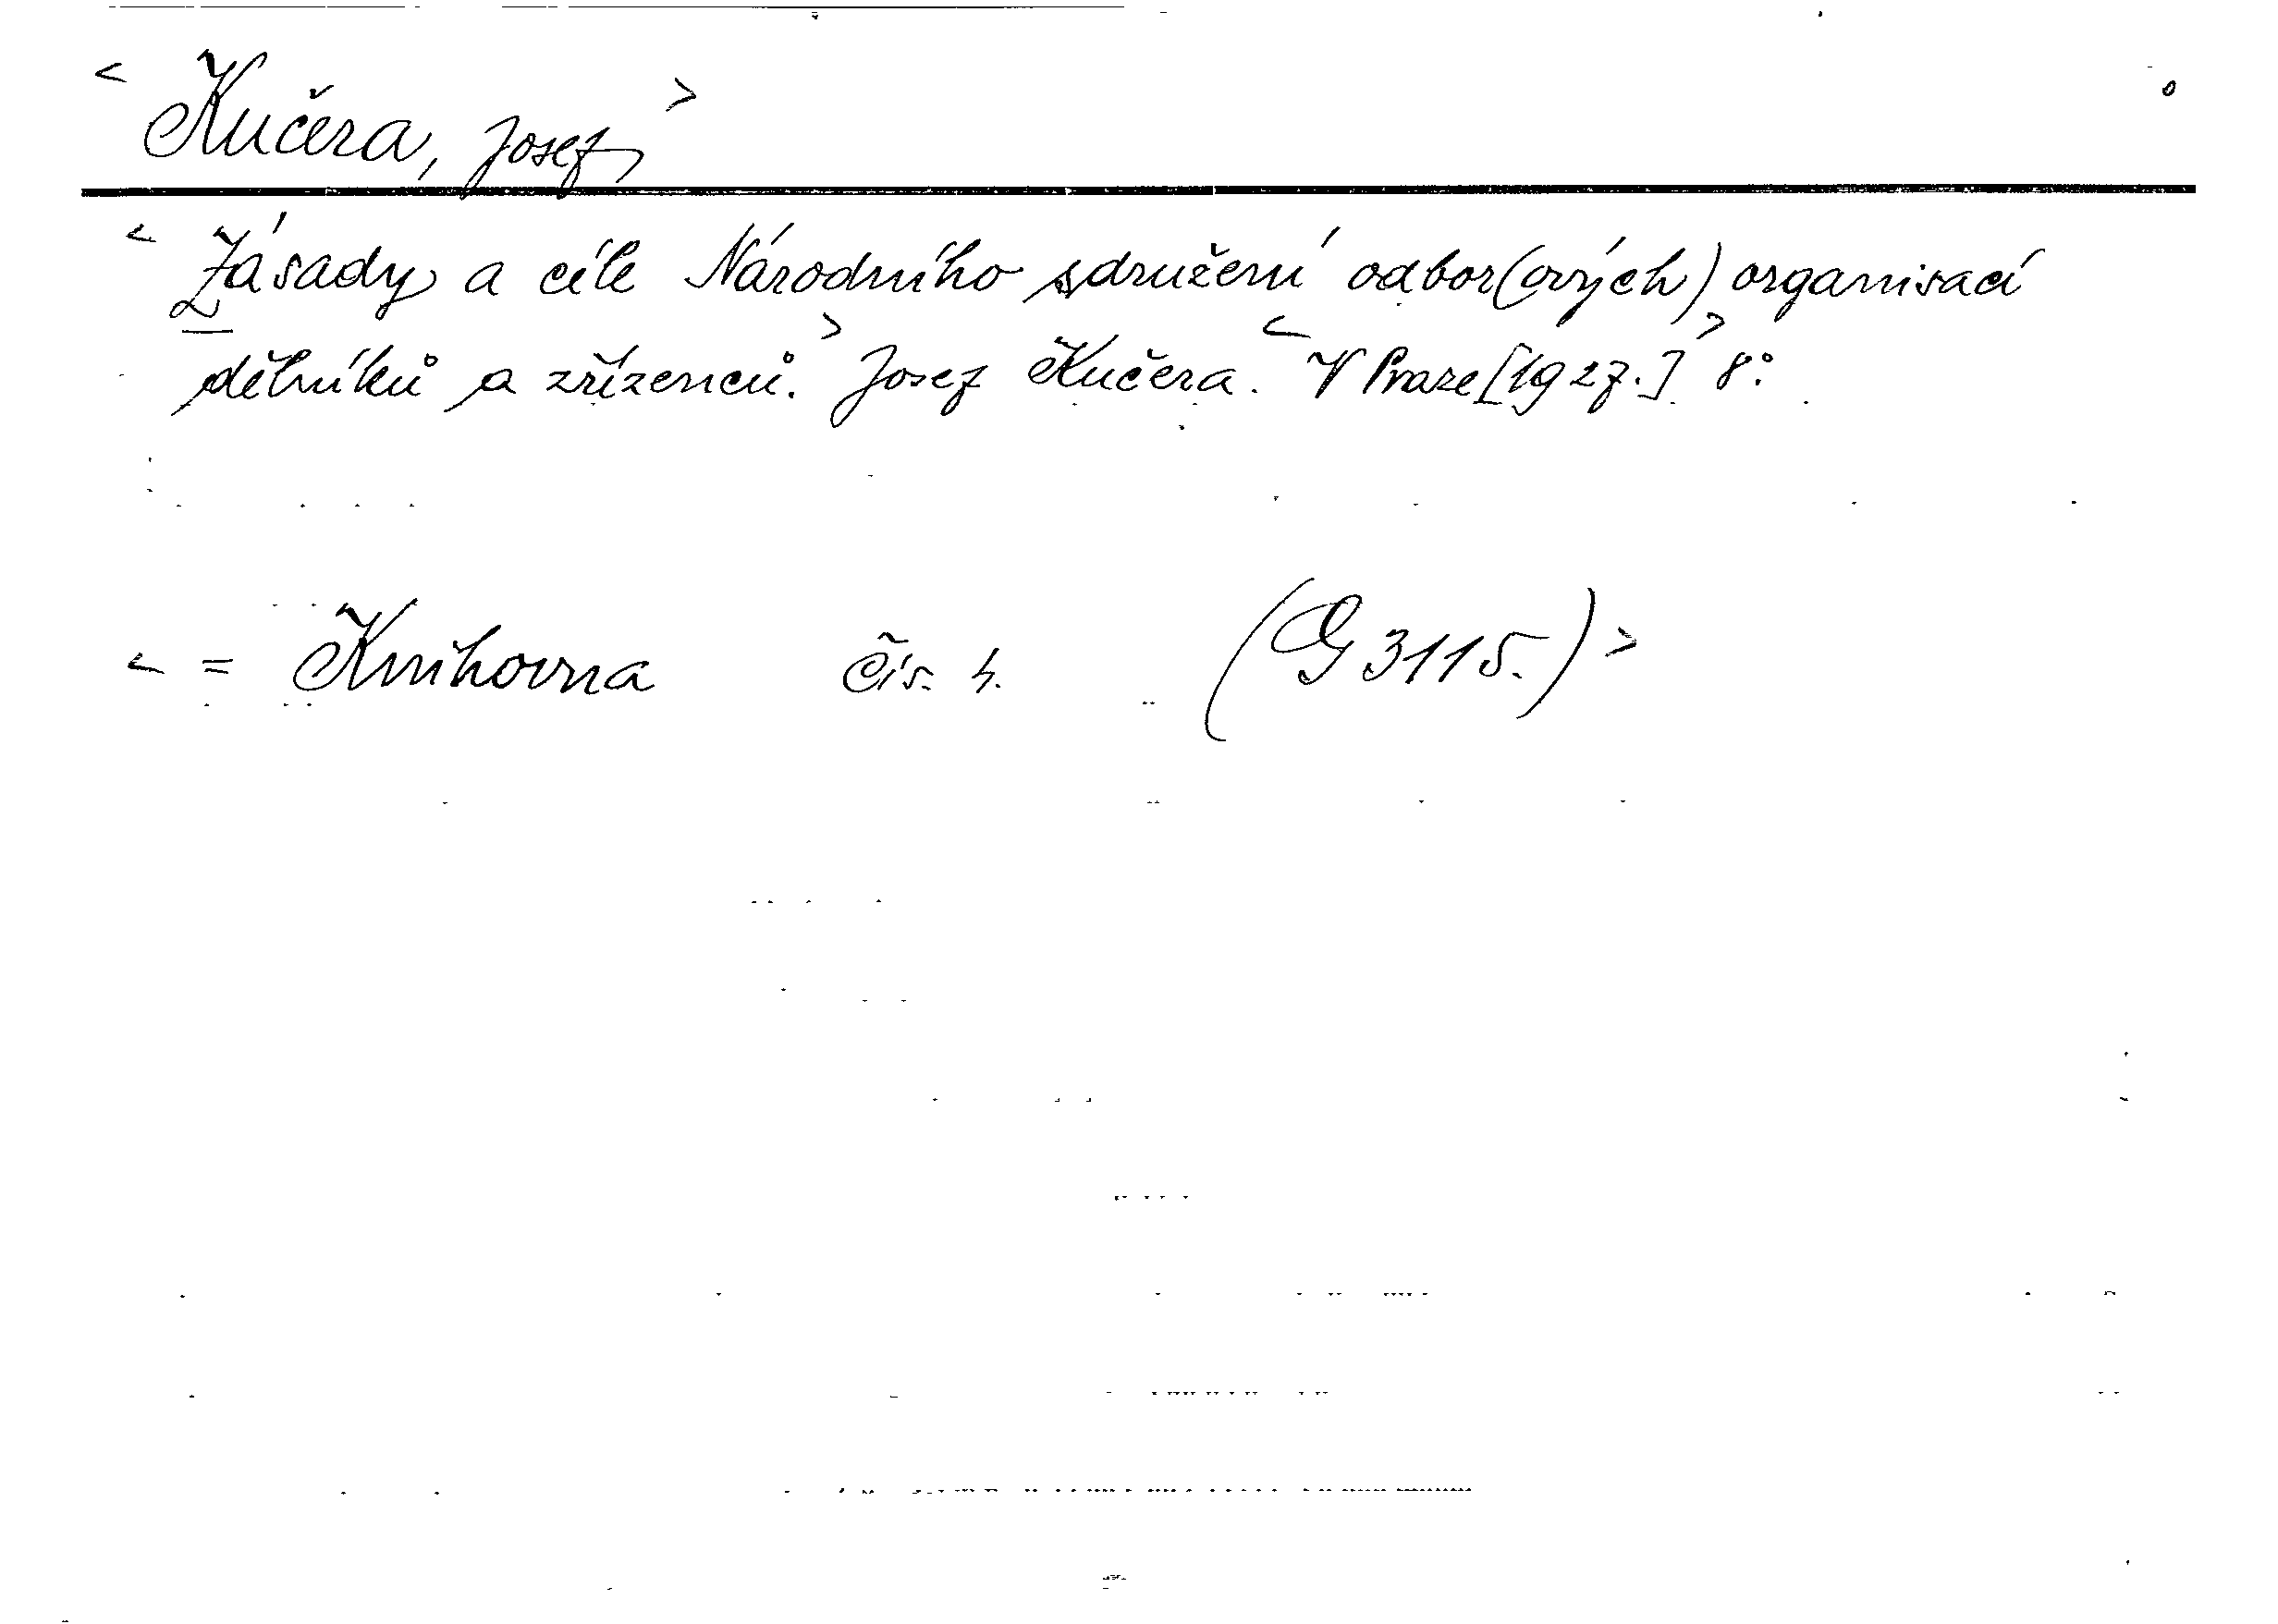 < Kučera, Josef, >
< Zásady a cíle Národního sdružení odbor(ových) organisací
dělníků a zřízenců. > Josef Kučera. < V Praze [1927.] > 8°.
< = Knihovna čís. 4. (G 3115.) >